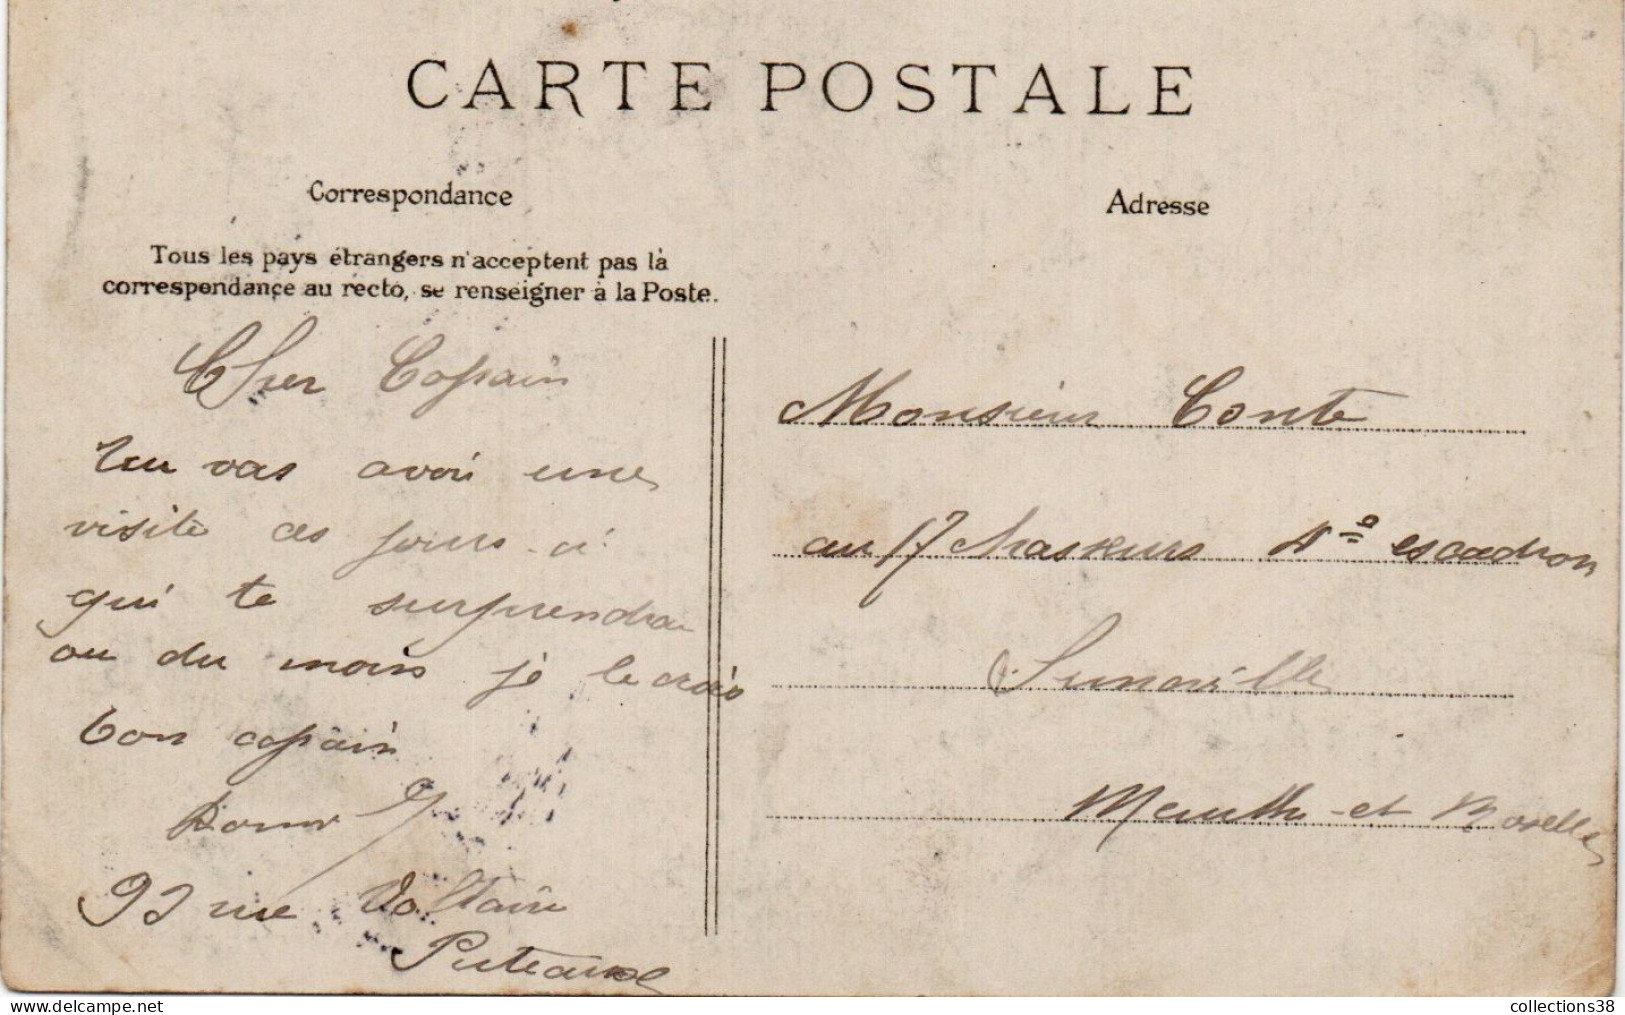 CARTE POSTALE
Correspondance
Tous les pays étrangers n'acceptent pas la
correspondance au recto, se renseigner à la Poste.
Cher Copain
Tu vas avoir une
visite ces jours ci
qui te surprendra
ou du moins je le crois
bon copain
93 rue Voltaire
Puteaux
Adresse
Monsieur Conte
au 17 Chasseurs 4e escadron
Luneville
Meurthe et Moselle
collections38